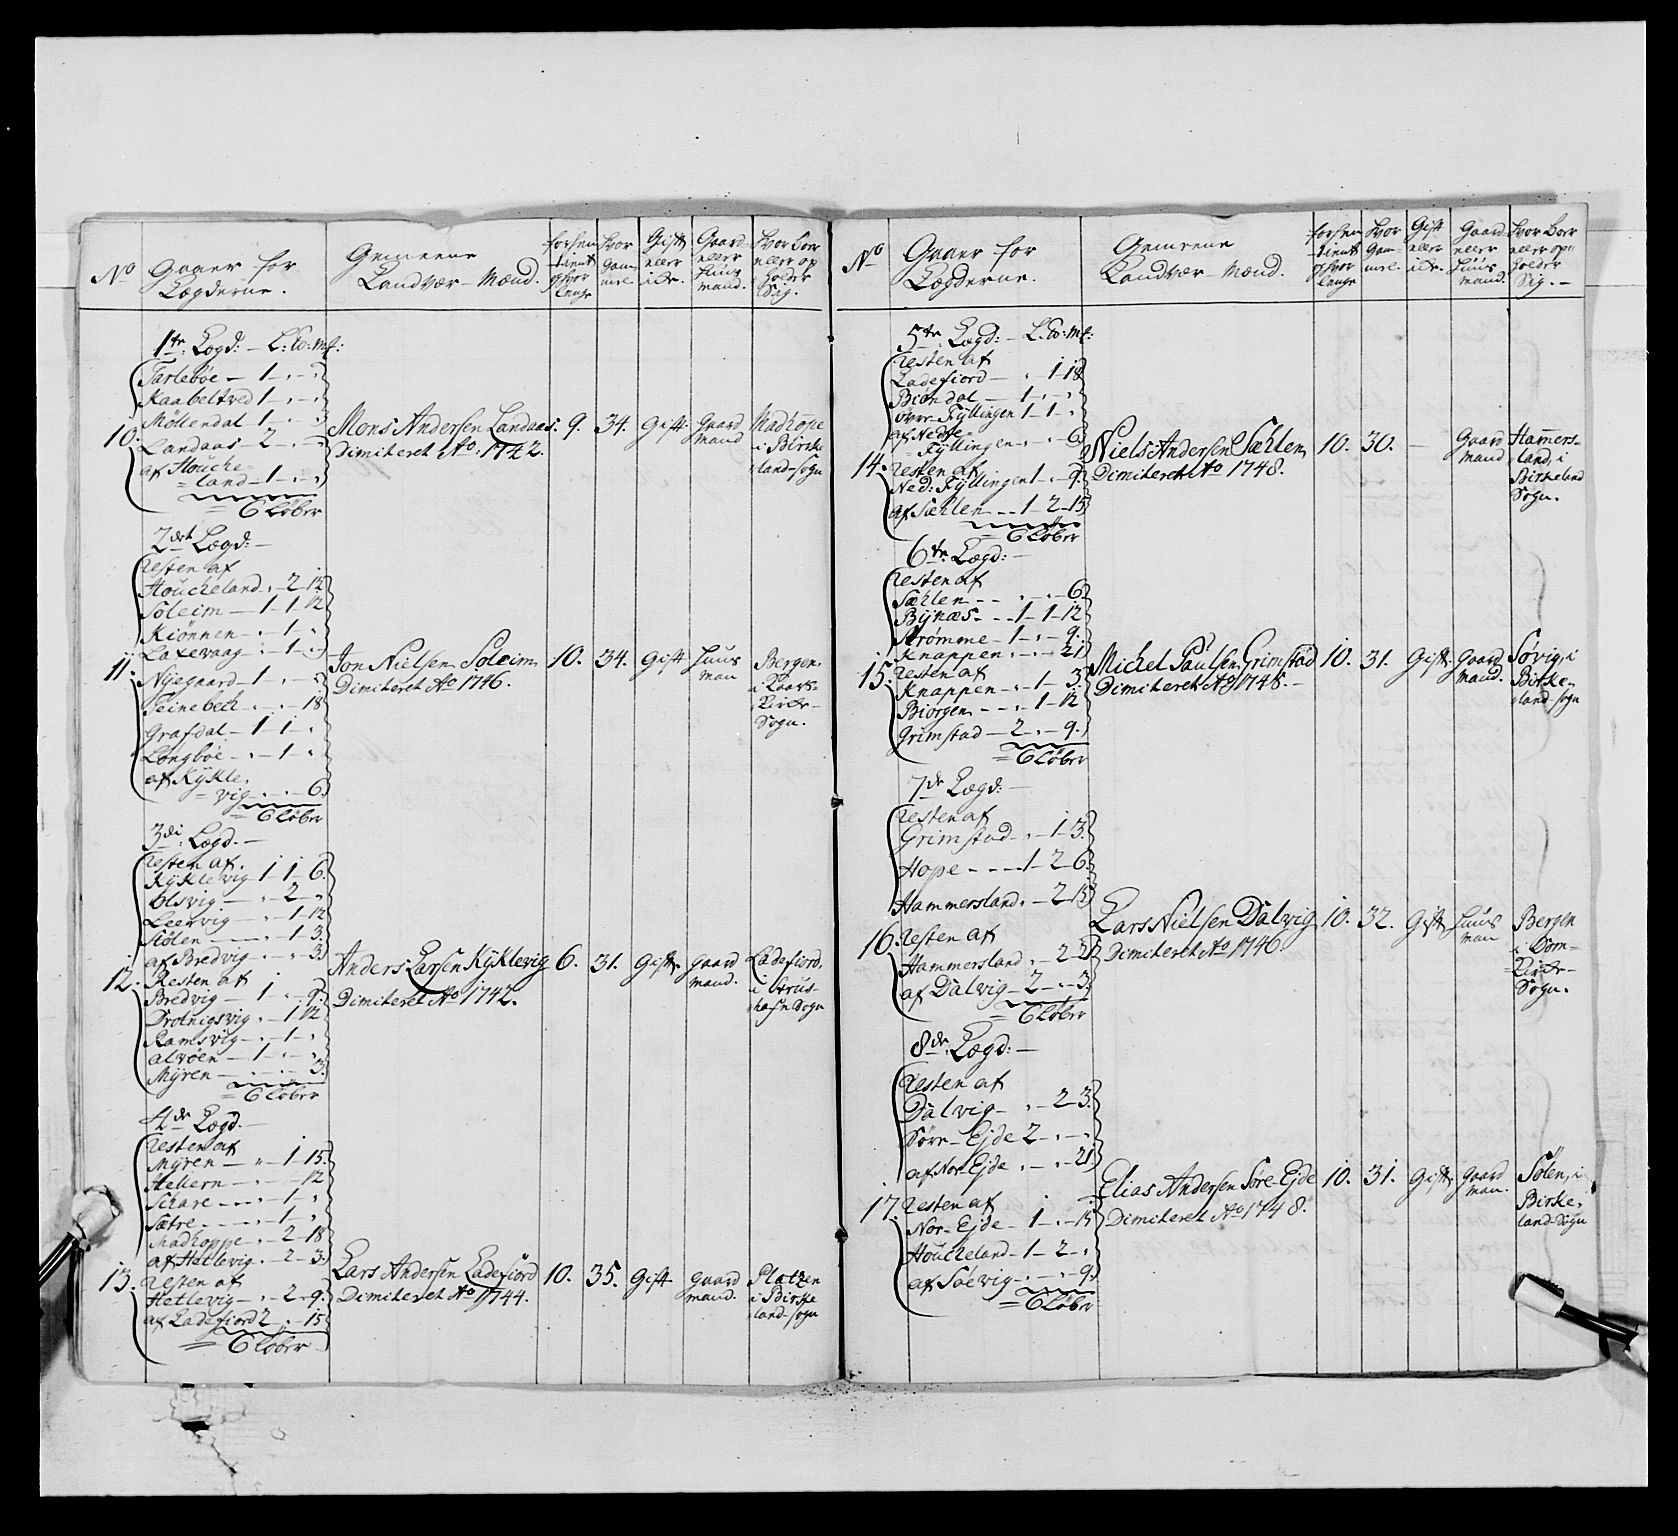 No
Gaaer for
Lægderne.
Gemeene
Landvær-Mænd.
forhen
tient
og hvor
lenge
Hvor
Gam-
mel.
Gift
eller
ickr.
Gaard
eller
Huus
mand.
Hvor boer
eller op
holder
Sig.
1te Lægd: – L: B: mk:
Tarleböe – 1 – „ – „
Kaabeltved 1 – „ – „
Möllendal 1 – „ – „
Landaas – 2 – „ – „
af Houche-
= land – 1 – „ – „
= 6 Löber
10.
Mons Andersen Landaas
Dimiteret Ao: 1742.
9. 34. Gift. Gaard
mand
Madhope
i Birke
land-sogn
2det Lægd: –
resten af
Houcheland „ – 2 – 12
Soleim – 1 – 1 – 12
Kiönnen – „ – 1 – „
Laxevaag – „ – 1 – „
Nyegaard – 1 – „ – „
Steinebech – „ – „ – 18
Grafdal – 1 – 1 – „
Longböe – „ – 1 – „
af Kykle-
= vig – „ – „ – 6
= 6 Löber
11.
Jon Nielsen Soleim
Dimiteret Ao 1746.
10. 34. Gift Huus
man
Bergen
i Kaars-
Kirke-
Sogn.
3die Lægd. –
resten af
Kyklevig 1 – 1 – 6.
Olsvig – „ – 2 – „
Leervig – „ – 1 – 12
Stölen – „ – 1 – 3.
af Bredvig – „ – „ – 3
Resten af
Bredvig – 1 – „ – 9.
Drotnigsvig „ – 1 – 12
Ramsvig – „ – 1 – „
alvöen – 1 – „ – „
Myren – „ – „ – 3.
= 6 Löber
12.
Anders Larsen Kyklevig
Dimiteret Ao 1742.
6. 31. Gift. gaard
mand.
Ladefiord,
i Aus-
hafn Sogn
4de Lægd. –
resten af
Myren – „ – 1 – 15.
Hekern – „ – „ – 12
Schare – „ – 1 – „
Sætre – „ – 1 – „
Madhoppe „ – 2 – 18
af Hetlevig „ – 2 – 3
resten af
Hetlevig – „ – 2 – 9.
af Ladefiord 2 „ – 15
= 6 Löber
13.
Lars Andersen Ladefiord
Dimiteret Ao 1744.
10. 35. Gift gaard
mand.
Platzen
i Birke
land-sogn
No
Gaaer for
Lægderne.
Gemeene
Landvær-Mænd.
forhen
tient
og hvor
lenge
Hvor
Gam-
mel.
Gift
eller
ickr.
Gaard
eller
Huus
mand.
Hvor boer
eller op
holder
Sig. –
5te Lægd: – L: B: mk:
resten af
Ladefiord – „ – 1 – 18
Biöndal – 1 – „ – „
övre-Fyllingen 1 – 1 – „
af Nedre-
= Fyllingen „ – „ – 6
resten af
Ned: Fyllingen 1 – „ – 9.
af Sæhlen – 1 – 2 – 15
= 6 Löber
14.
Niels Andersen Sæhlen
Dimiteret Ao 1748.
10. 30. – Gaard
mand
Hamers-
land, i
Birkeland
Sogn.
6te Lægd: –
resten af
Sæhlen – „ – „ – 6.
Bynæs – 1 – 1 – 12
Strömme – 1 – „ – 9.
Knappen „ – „ – 21
resten af
Knappen – „ – 1 – 3.
Biorgen – „ – 1 – 12
Grimstad – 2 – „ – 9.
= 6 Löber
15.
Michel Paulsen Grimstad
Dimiteret Ao 1748. –
10. 31. Gift. Gaard
mand.
Søvig, i
Birke-
land-sogn
7de Lægd: –
resten af
Grimstad – „ – 1 – 3.
Hope – 1 – 2 – 6.
Hammersland „ – 2 – 15
resten af
Hammersland „ – 2 – 21
af Dalvig – 2 – „ – 3.
= 6 Löber
16.
Lars Nielsen Dalvig
Dimiteret Ao 1746.
10. 32. Gift Huus
man
Bergen
i Dom-
Kirke-
Sogn.
8de Lægd: –
resten af
Dalvig – „ – 2 – 3.
Söre-Ejde 2 – „ – „
af Nor-Ejde „ – „ – 21
resten af
Nor-Ejde – 1 – „ – 15
Houcheland – 1 – 2 – „
af Søevig – „ – „ – 9.
= 6 Löber
17.
Elias Andersen Söre-Ejde
Dimiteret Ao 1748.
10. 31. Gift. gaard
man.
Sölen, i
Birke-
land-Sogn